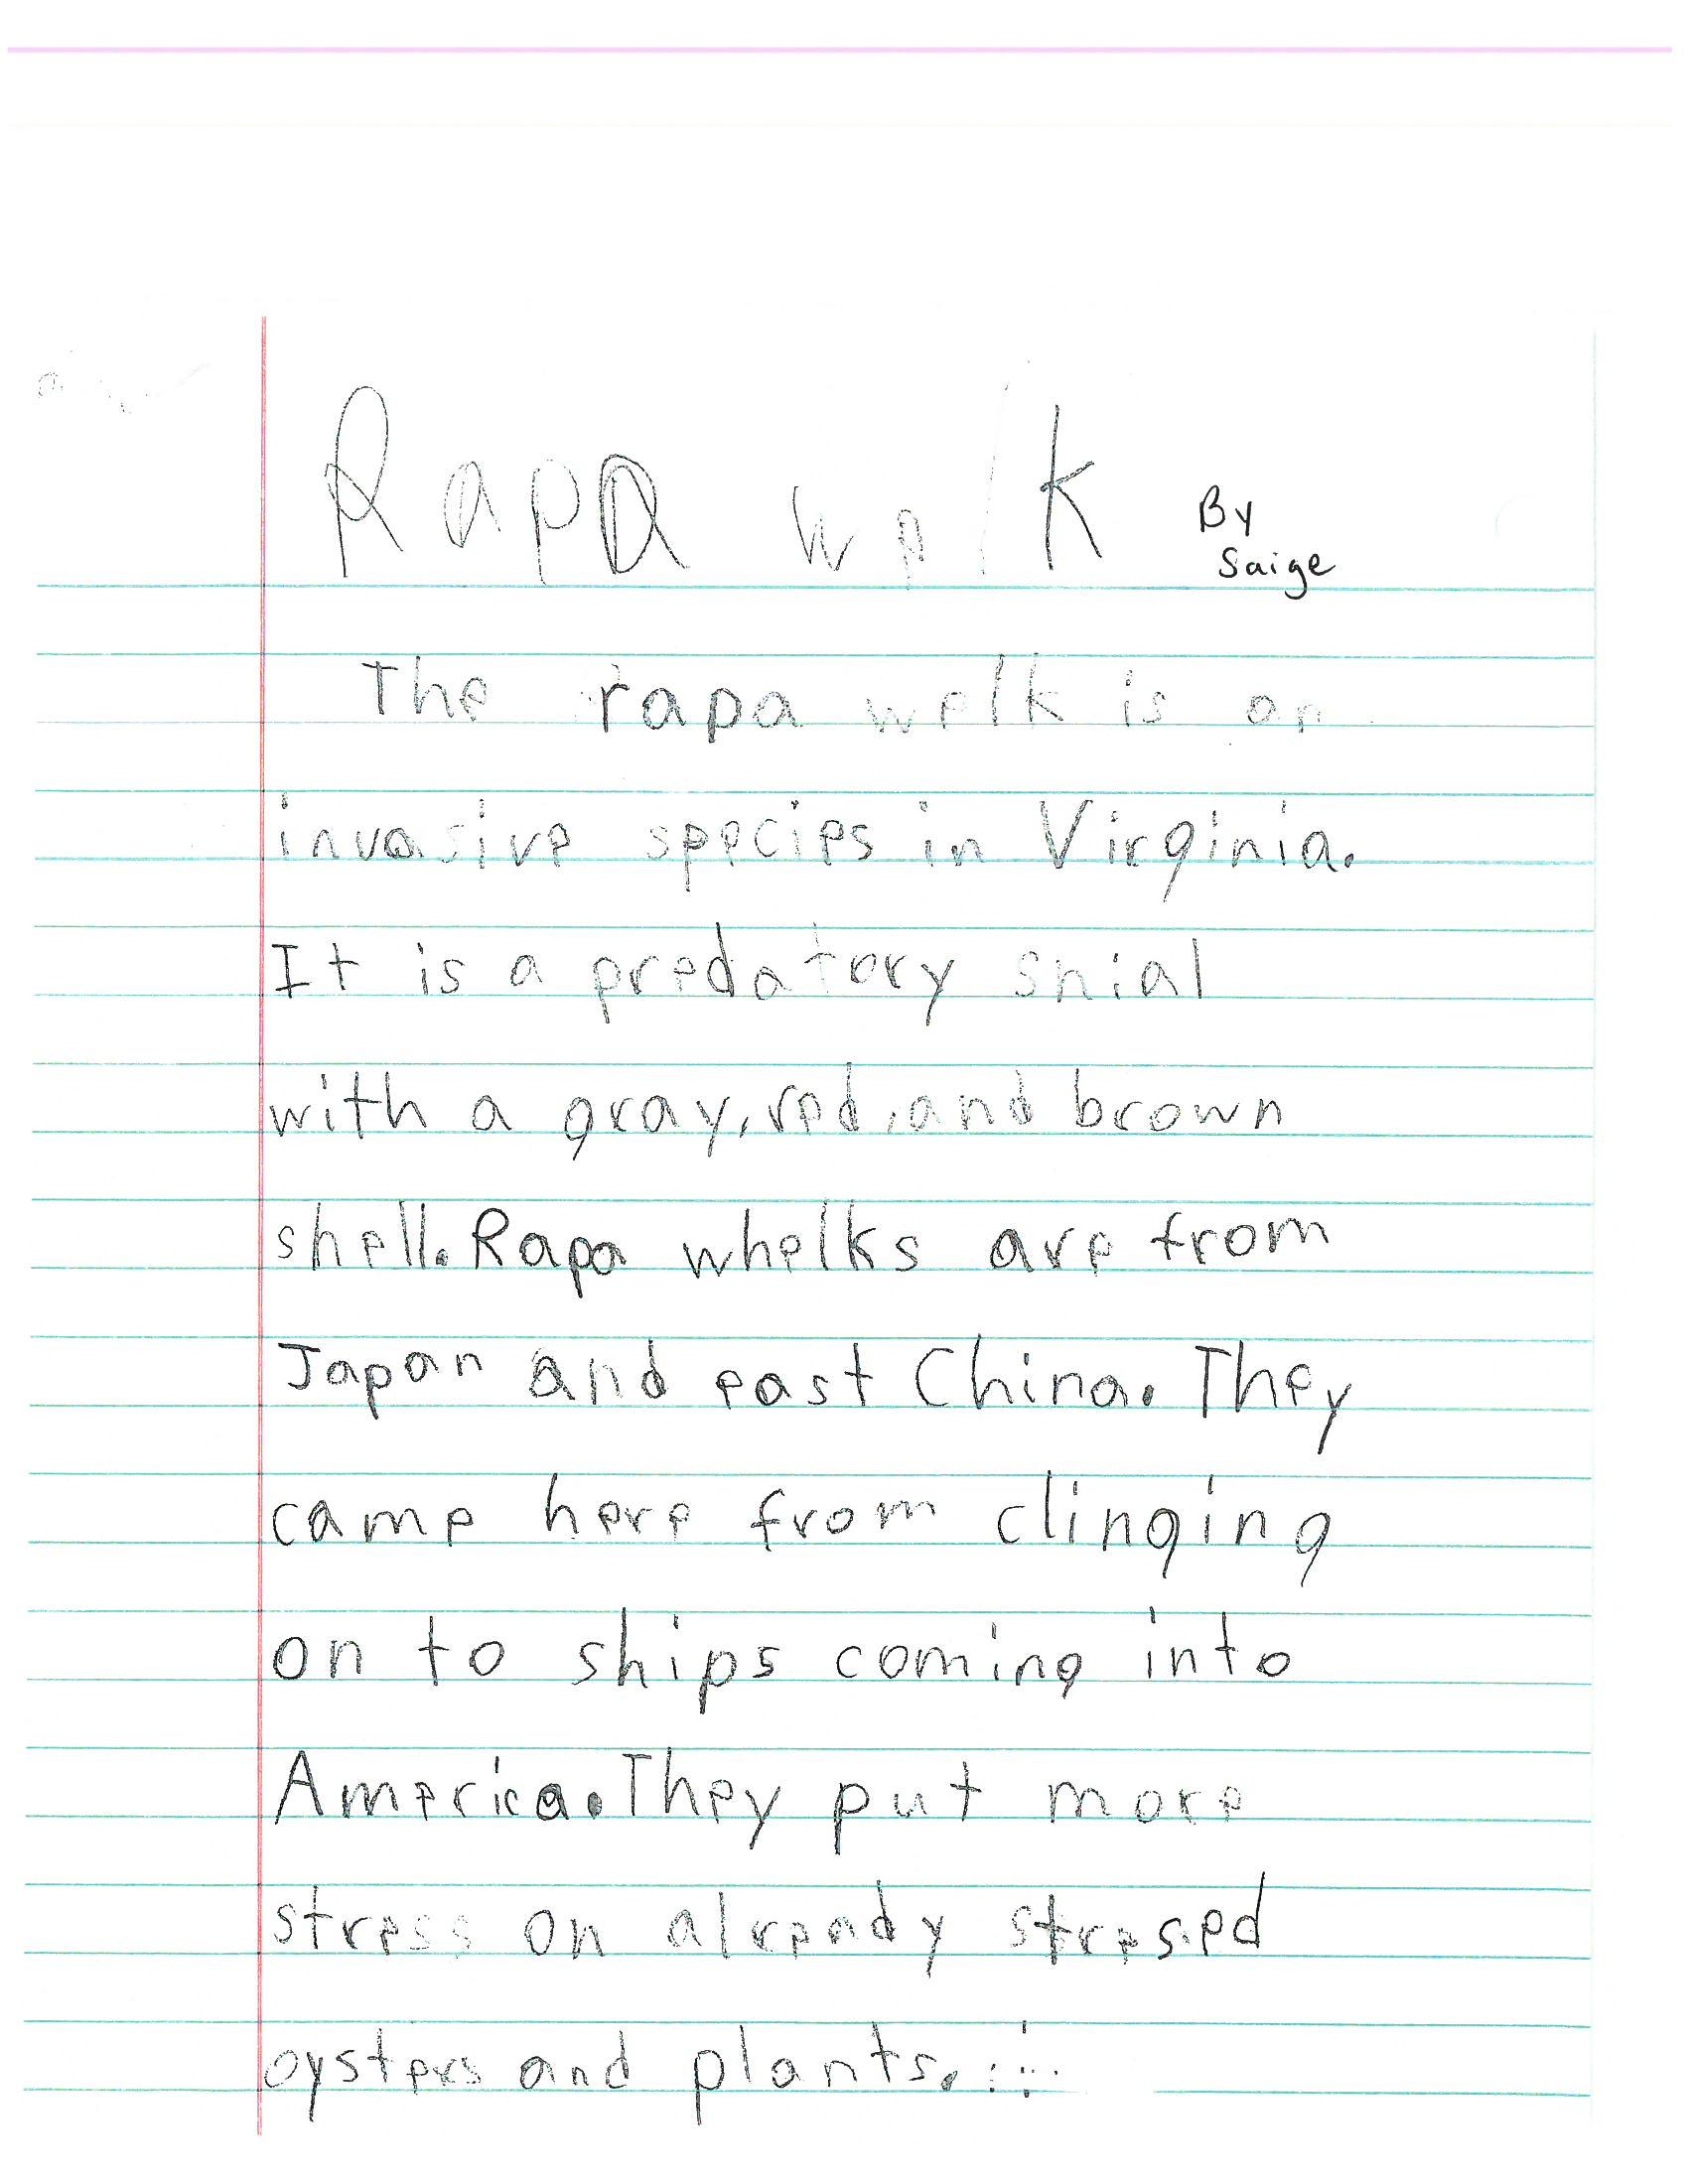 Rapa welk By
Saige
The rapa welk is an
invasive species in Virginia.
It is a predatory snial
with a gray, red, and brown
shell. Rapa whelks are from
Japan and east China. They
came here from clinging
on to ships coming into
America. They put more
stress on already stresed
oysters and plants.